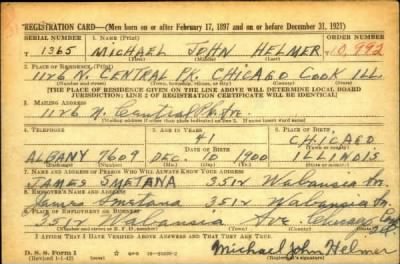 REGISTRATION CARD—(Men born on or after February 17, 1897 and on or before December 31, 1921)
SERIAL NUMBER 1. NAME (Print) ORDER NUMBER
T 1365 MICHAEL JOHN HELMER 10,992
(First) (Middle) (Last)
2. PLACE OF RESIDENCE (Print)
1126 N. CENTRAL PK. CHICAGO COOK ILL.
(Number and street) (Town, township, village, or city) (County) (State)
[THE PLACE OF RESIDENCE GIVEN ON THE LINE ABOVE WILL DETERMINE LOCAL BOARD
JURISDICTION; LINE 2 OF REGISTRATION CERTIFICATE WILL BE IDENTICAL]
3. MAILING ADDRESS
1126 N. Central Pk.
[Mailing address if other than place indicated on line 2. If same insert word same]
4. TELEPHONE 5. AGE IN YEARS 6. PLACE OF BIRTH
41 CHICAGO
DATE OF BIRTH (Town or county)
ALBANY 7609 DEC. 10 1900 ILLINOIS
(Exchange) (Number) (Mo.) (Day) (Yr.) (State or country)
7. NAME AND ADDRESS OF PERSON WHO WILL ALWAYS KNOW YOUR ADDRESS
JAMES SMETANA 3512 Wabansia
8. EMPLOYER'S NAME AND ADDRESS
James Smetana 3512 Wabansia
9. PLACE OF EMPLOYMENT OR BUSINESS
3512 Wabansia Ave Chicago
(Number and street or R. F. D. number) (Town) (County) (State)
I AFFIRM THAT I HAVE VERIFIED ABOVE ANSWERS AND THAT THEY ARE TRUE.
D. S. S. Form 1
(Revised 1-1-42) Michael John Helmer